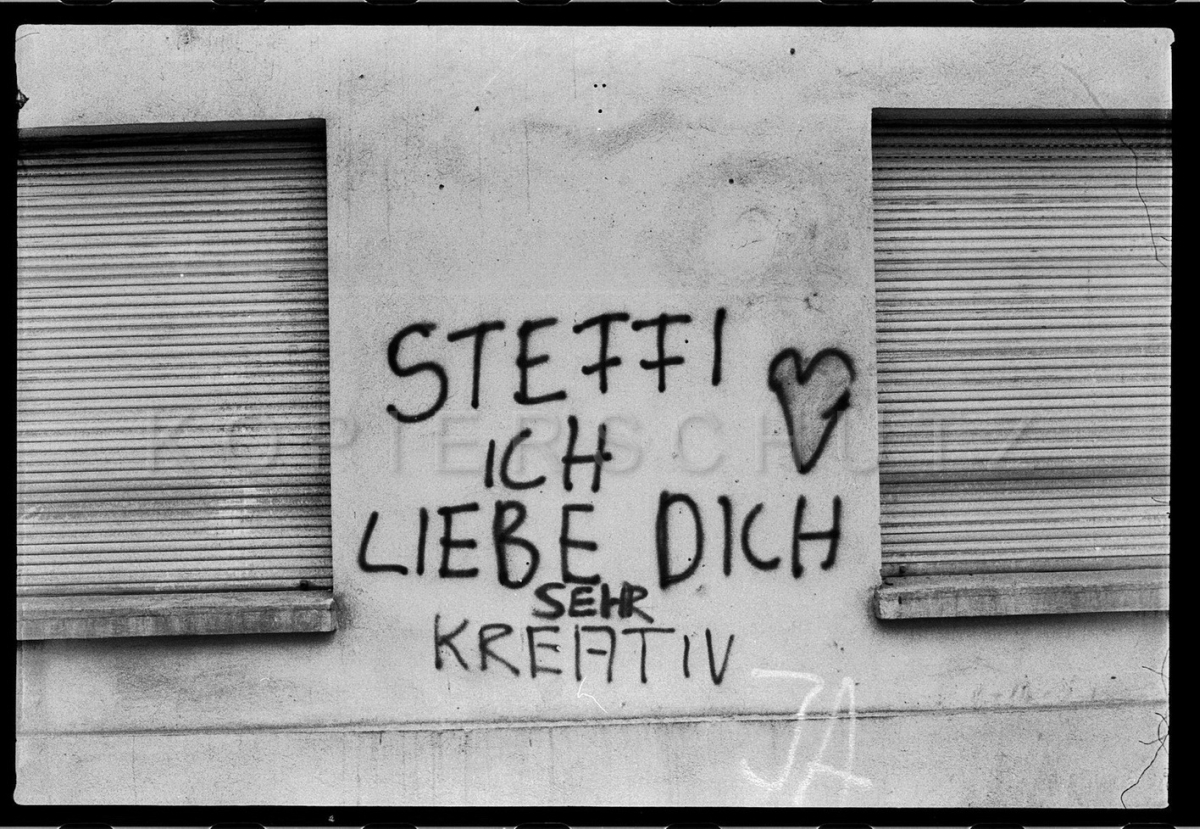 STEFFI
ICH
LIEBE DICH
SEHR
KREATIV
JA
KOPIERSCHUTZ